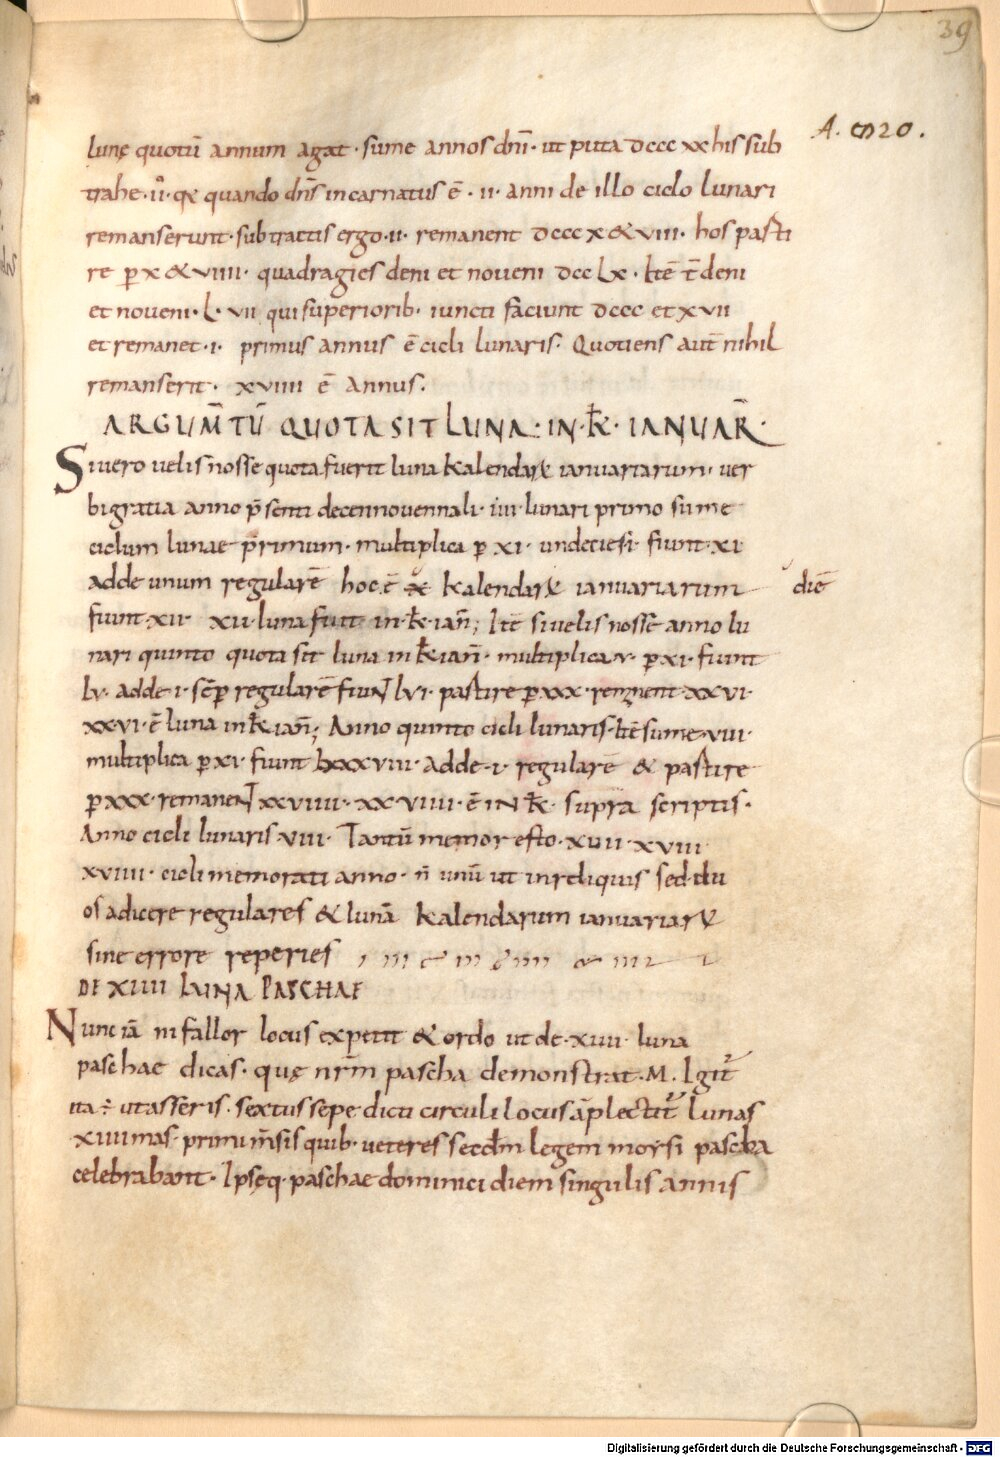 39
A. 920.
lunę quotū annum agat · sume annos dnī · ut puta dccc xx his sub
trahe · ii · qꝫ quando dn̄s incarnatus ē · ii · anni de illo ciclo lunari
remanserunt · subtractis ergo · ii · remanent dccc x & viii · hos parti
re p̄ x & viiii · quadragies deni et noveni dcc lx · Itē t̄ deni
et noveni · l · vii qui superiorib · iuncti faciunt dccc et xvii
et remanet · i · primus annus ē cicli lunaris · Quotiens aut̄ nihil
remanserit · xviiii ē annus ·
ARGUM̄TŪ QUOTA SIT LUNA · IN · K̄ · IANUAR̄ ·
Si vero velis nosse quota fuerit luna kalendaꝝ ianuariarum · ver
bi gratia anno p̄senti decennovennali · iiii · lunari primo sume
ciclum lunae primum · multiplica p̄ xi · undecies i · fiunt · xi
adde unum regularē hoc · ē kalendaꝝ ianuariarum diē
fiunt · xii · xii · luna fuit in · k̄ · ian̄; Itē si velis nosse anno lu
nari quinto quota sit luna in k̄ ian̄ · multiplica · v · p̄ xi · fiunt
lv · adde · i · sēp regularē fiunt lvi · partire p̄ xxx · remanent · xxvi ·
xxvi · ē luna in k̄ ian̄; Anno quinto cicli lunaris · Itē sume · viii ·
multiplica p̄ xi · fiunt lxxxviii · adde · i · regularē & partire
p̄ xxx · remanent xxviiii · xxviiii · ē in k̄ · supra scriptis ·
Anno cicli lunaris · viii · Tantū memor esto · xvii · xviii
xviiii · cicli memorati anno · n̄ unū ut in reliquis sed · du
os adicere regulares & lunā kalendarum ianuariaꝝ
sine errore reperies
DE XIIII LUNA PASCHAE
Nunc iā ni fallor locus expetit & ordo ut de · xiiii · luna
paschae dicas · quę nr̄m pascha demonstrat · M · Igit̄
ita ÷ ut asseris · sextus sepe dicti circuli locus āplectit̄ lunas
xiiiimas · primi m̄sis quib · veteres secdm̄ legem moysi pascha
celebrabant · Ipseq · paschae dominici diem singulis annis
Digitalisierung gefördert durch die Deutsche Forschungsgemeinschaft - DFG